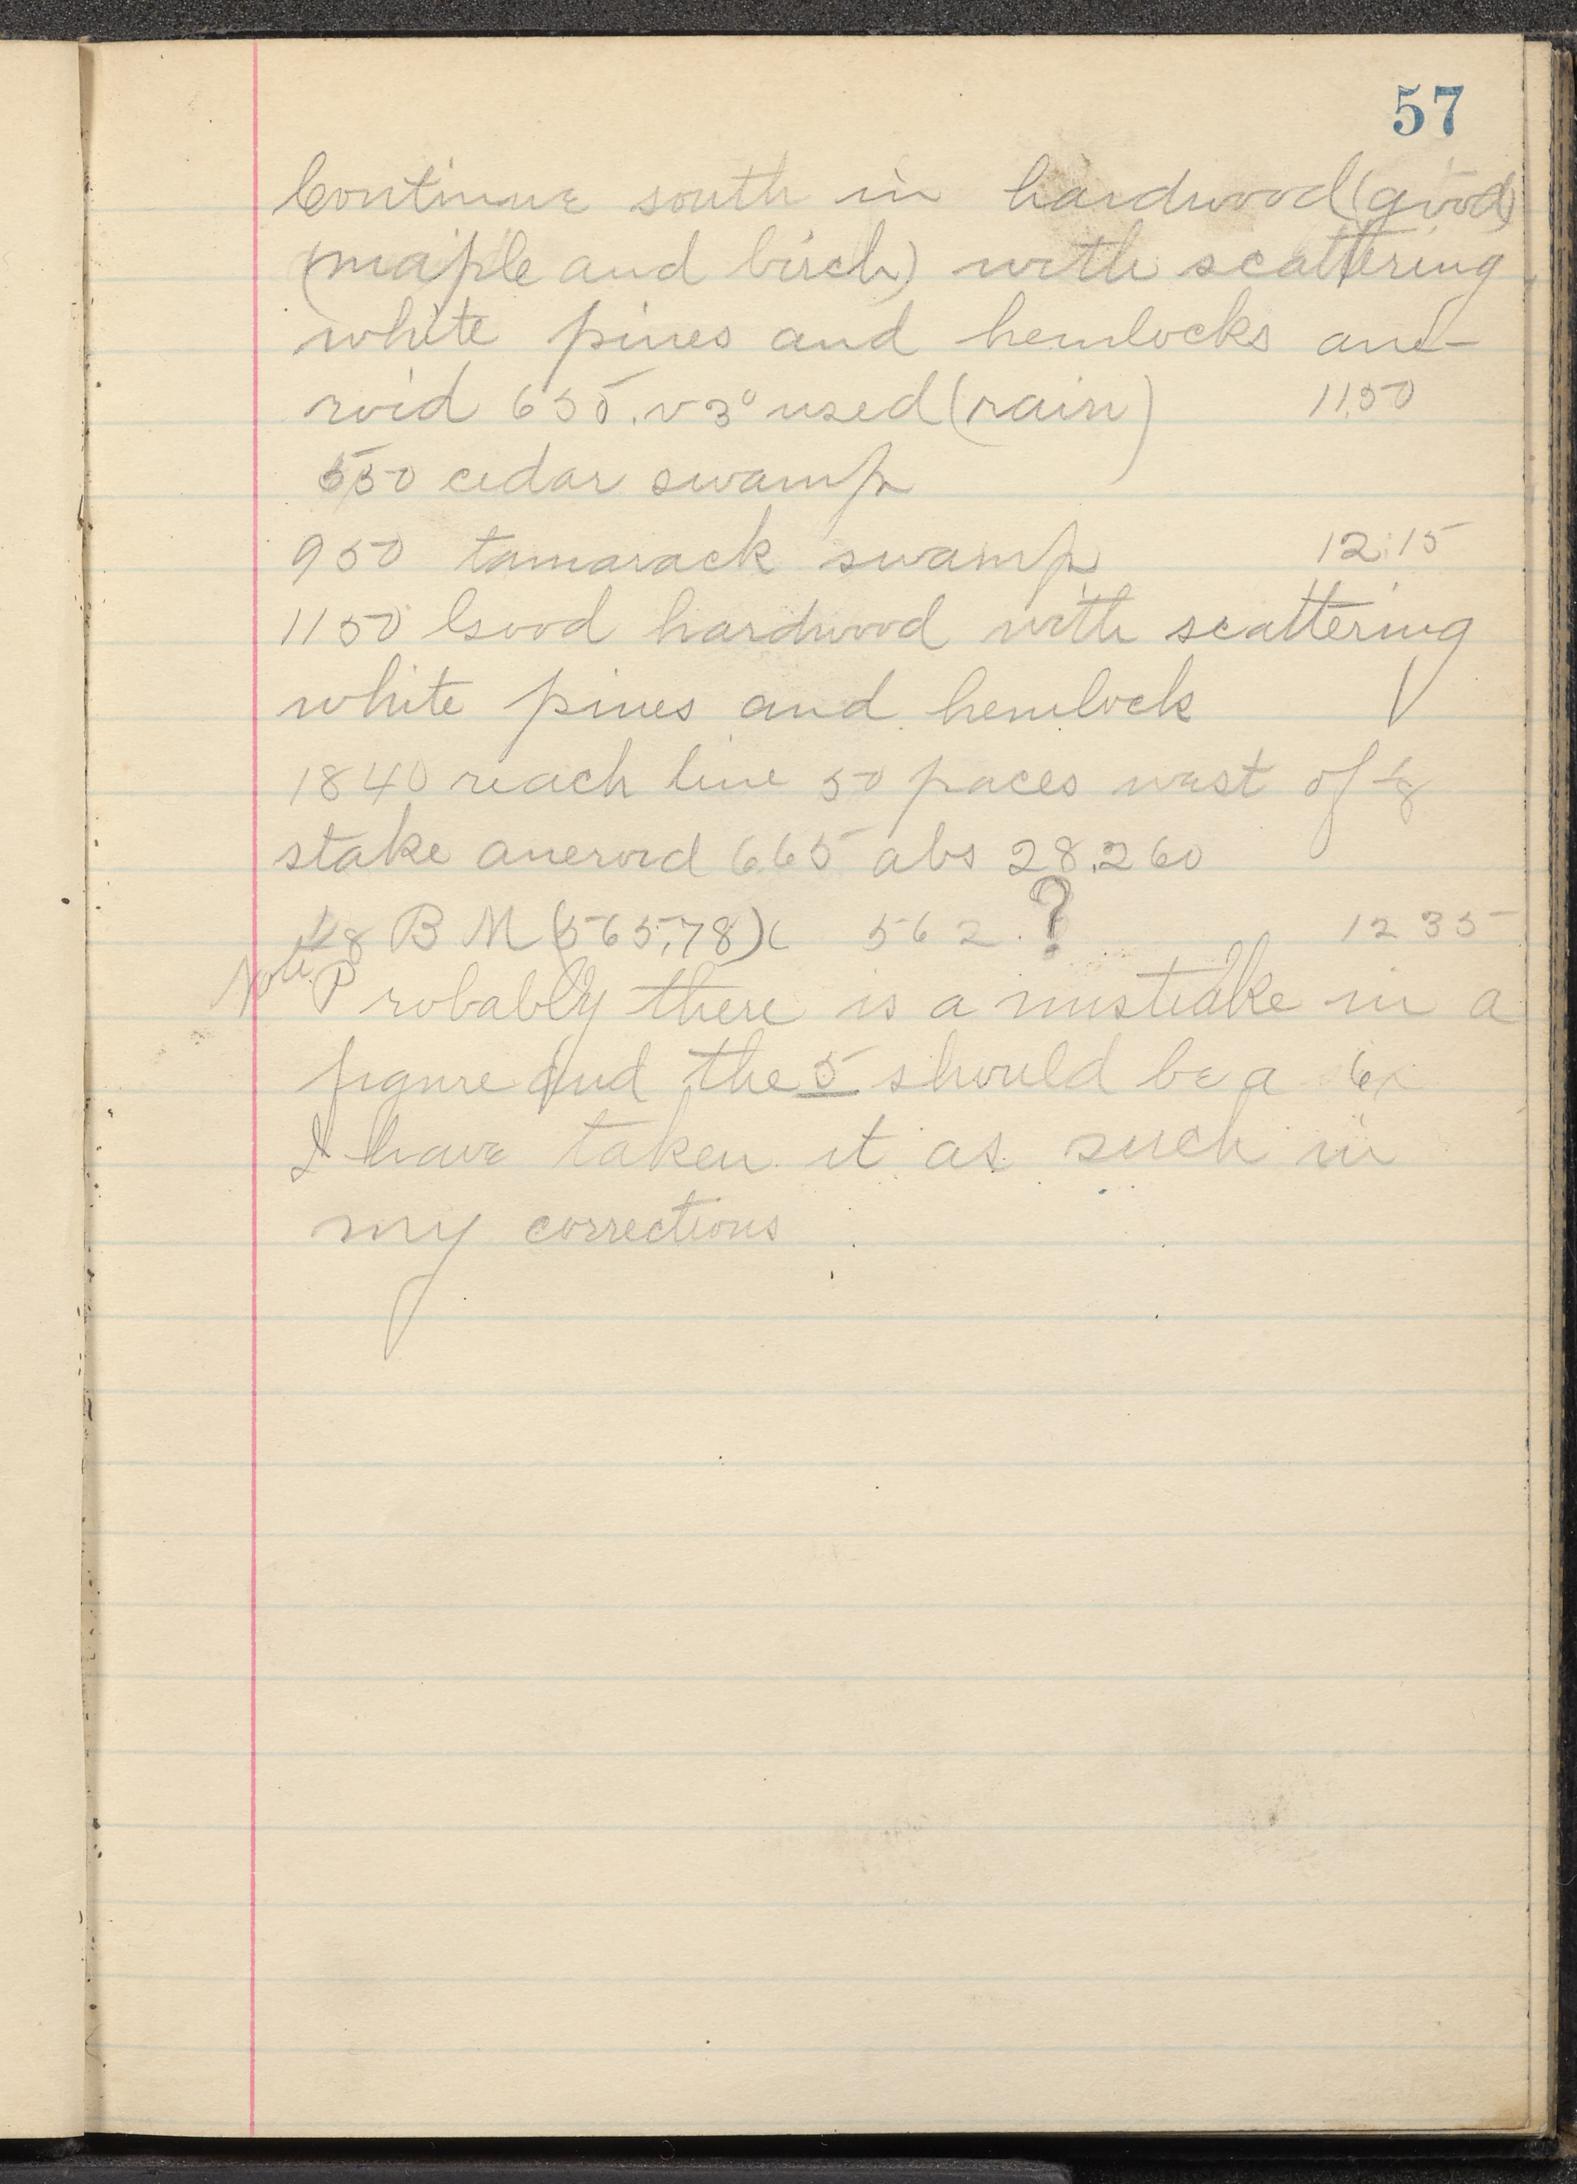 57
Continue south in hardwood (good)
(maple and birch) with scattering
white pines and hemlocks ane-
roid 655. v 3° used (rain) 11.50
550 cedar swamp
950 tamarack swamp 12:15
1150 Good hardwood with scattering
white pines and hemlock
1840 reach line 50 paces west of 1/8
stake aneroid 665 abs 28.260
1/8 B M (565.78) 562 ? 12 35
Note Probably there is a mistake in a
figure and the 5 should be a 6
I have taken it as such in
my corrections